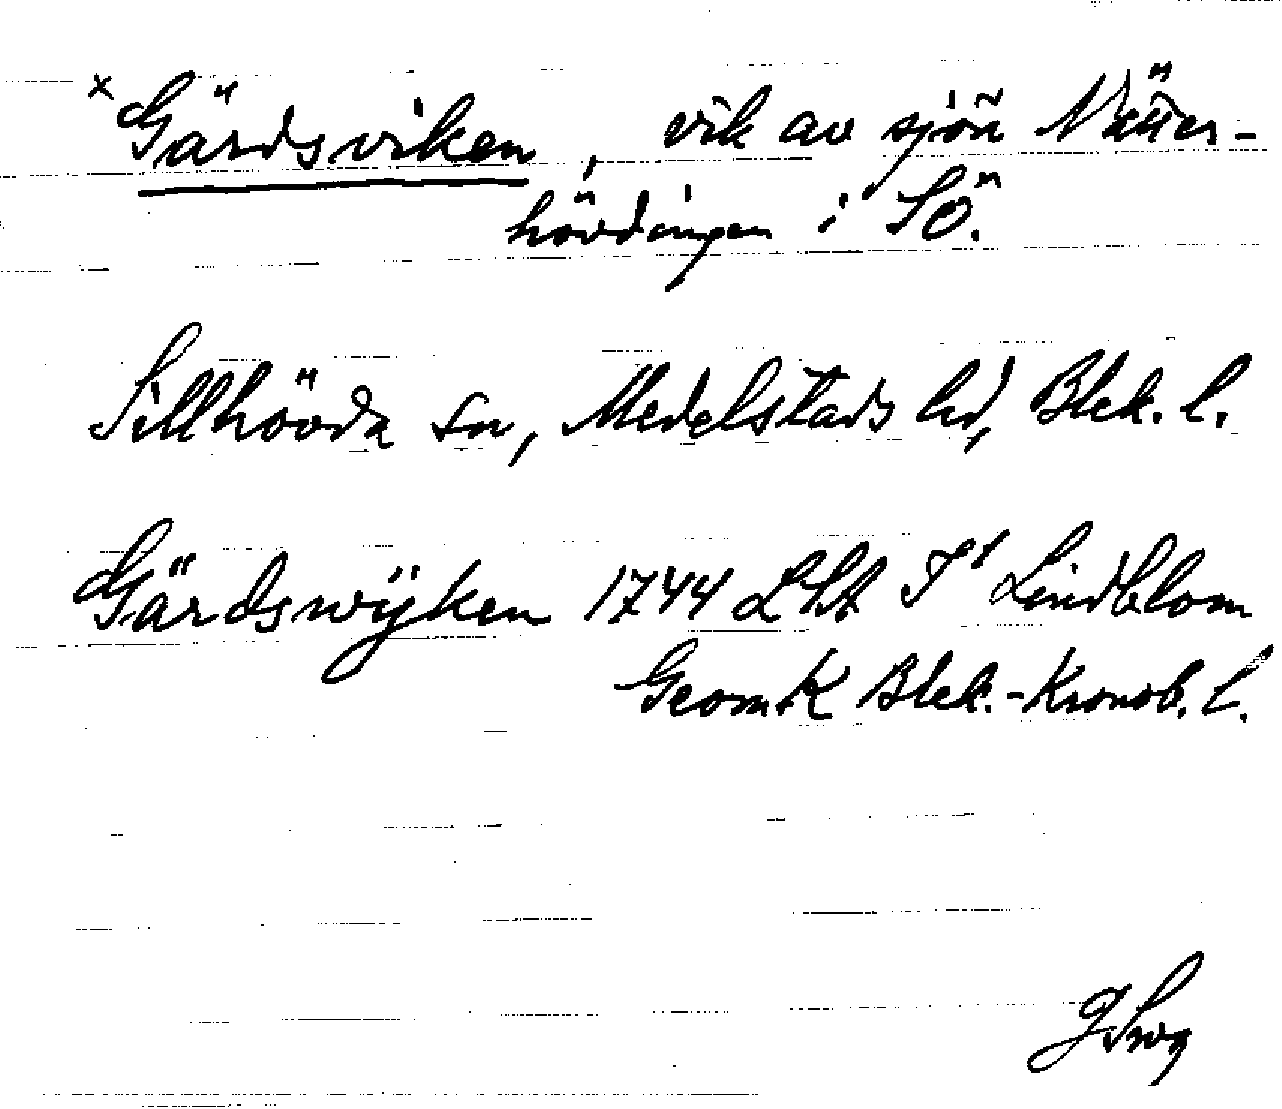 x Gärdsviken, vik av sjön Nätter-
hövdingen i SÖ.
Sillhövda sn, Medelstads hd, Blek. l.
Gärdswÿken 1744 Lht F1 Lindblom
GeomK Blek.-Kronob. l.